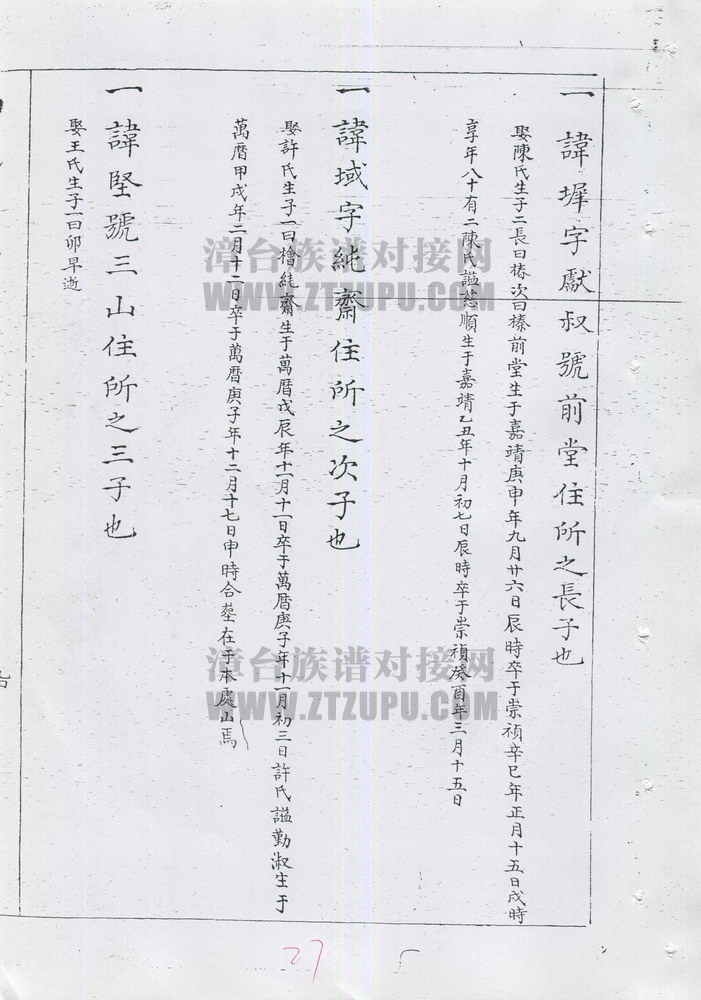 一諱墀字獻叔號前堂住所之長子也
娶陳氏生子二長曰椿次曰榛前堂生于嘉靖庚申年九月廿六日辰時卒于崇禎辛巳年正月十五日戌時
享年八十有二陳氏謚慈順生于嘉靖乙丑年十月初七日辰時卒于崇禎癸酉年三月十五日
一諱域字純齋住所之次子也
娶許氏生子一曰檜純齋生于萬曆戊辰年十一月十一日卒于萬曆庚子年十一月初三日許氏謚勤淑生于
萬曆甲戌年二月十二日卒于萬曆庚子年十二月十七日申時合塟在于本處山焉
一諱堅號三山住所之三子也
娶王氏生子一曰卯早逝
漳台族谱对接网
WWW.ZTZUPU.COM
漳台族谱对接网
WWW.ZTZUPU.COM
27